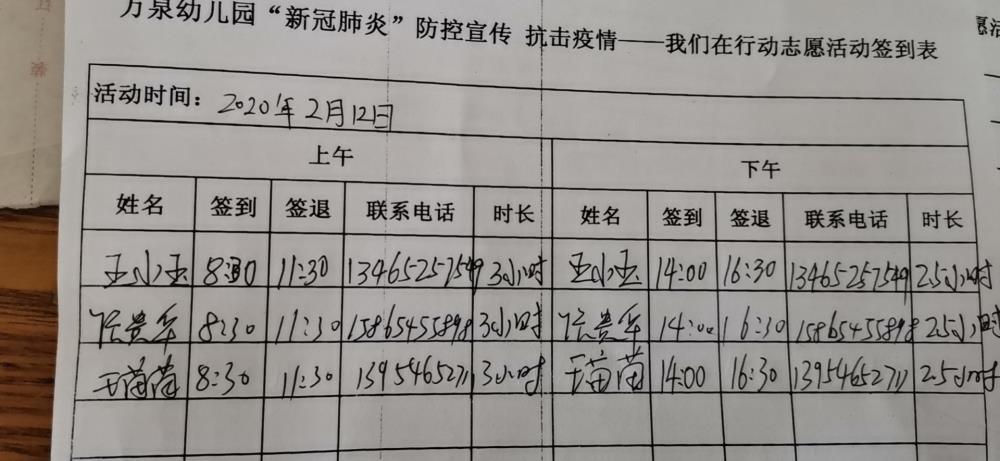 万泉幼儿园“新冠肺炎”防控宣传 抗击疫情——我们在行动志愿活动签到表
活动时间：2020年2月12日
上午 下午
姓名 签到 签退 联系电话 时长 姓名 签到 签退 联系电话 时长
王小玉 8:30 11:30 13465257549 3小时 王小玉 14:00 16:30 13465257549 2.5小时
贵华 8:30 11:30 15865455898 3小时 贵华 14:00 16:30 15865455898 2.5小时
王苗苗 8:30 11:30 13954652711 3小时 王苗苗 14:00 16:30 13954652711 2.5小时
愿活